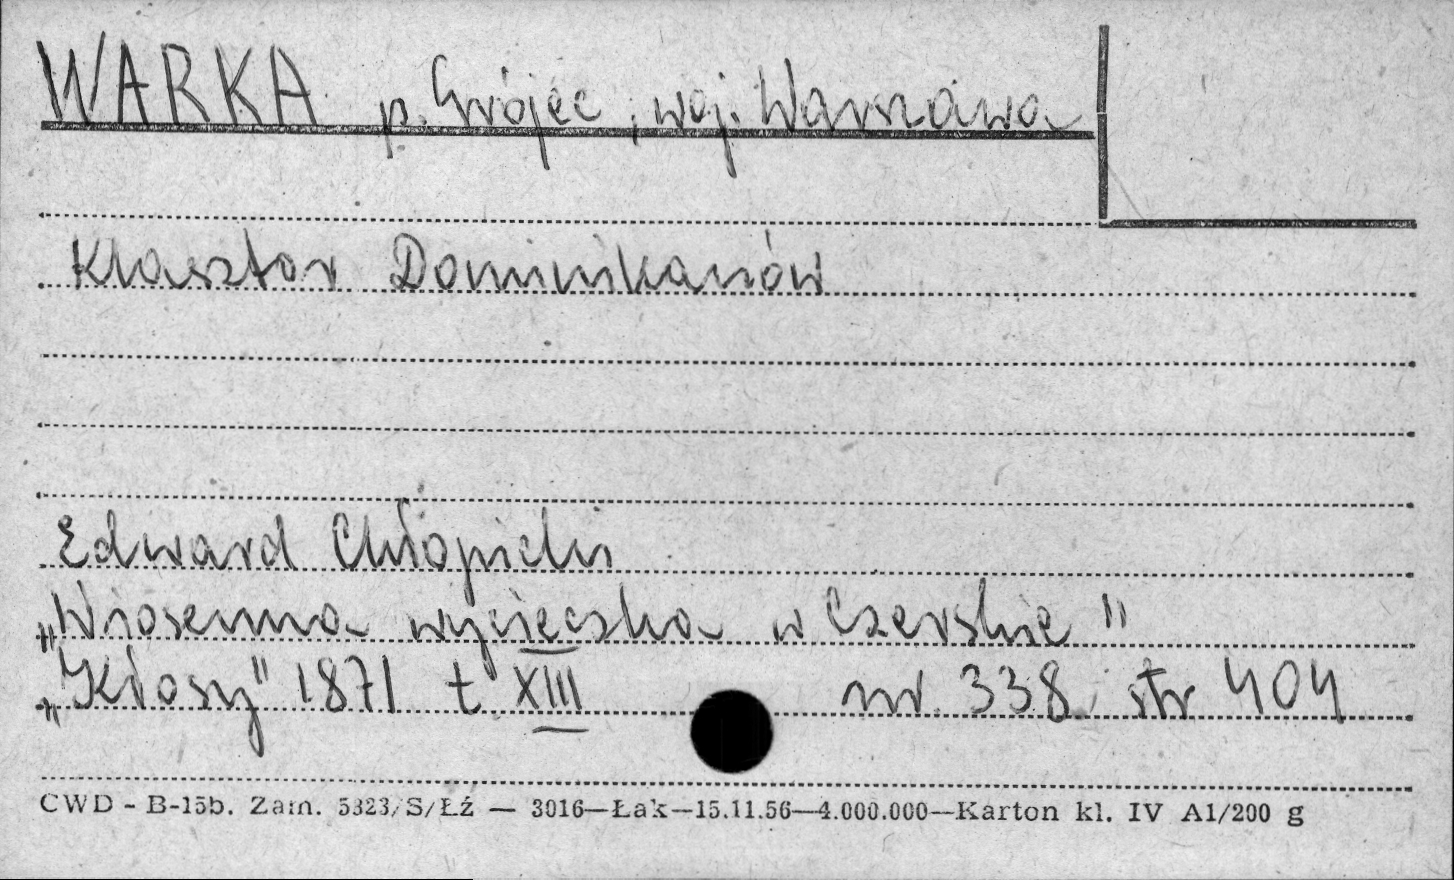 WARKA p. Grójec, woj. Warszawa
Klasztor Dominikanów
Edward Chłopicki
„Wiosenna wycieczka w Czerskie"
„Kłosy" 1871 t XIII nr. 338 str 404
CWD - B-15b. Zam. 5323/S/Łź — 3016—Łak—15.11.56—4.000.000—Karton kl. IV A1/200 g